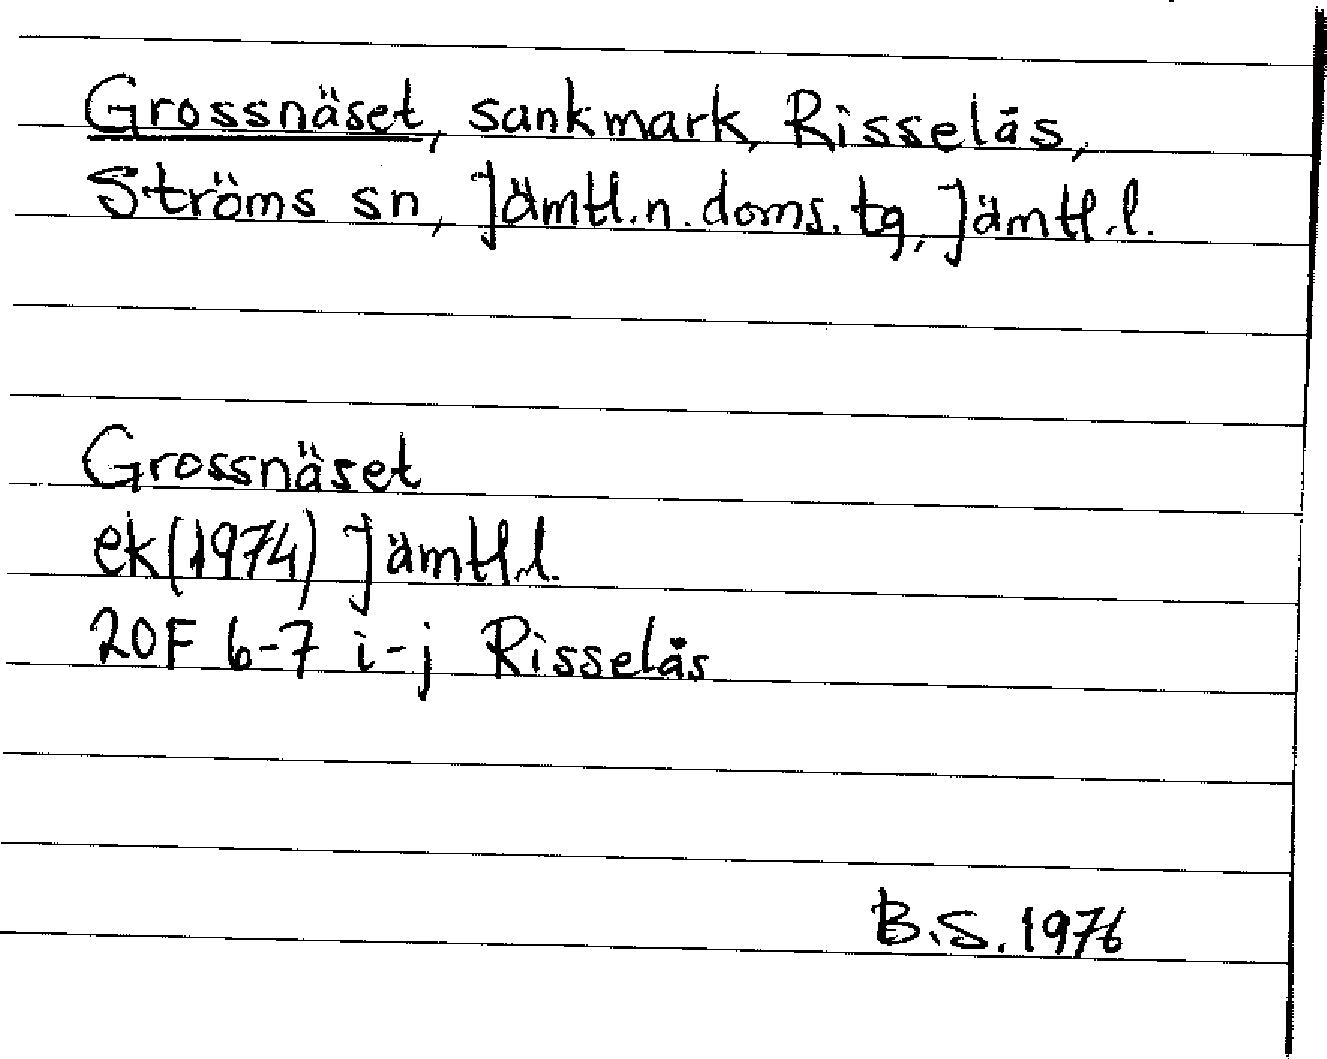 Grossnäset, sankmark, Risselås,
Ströms sn, Jämtl.n.doms.tg, Jämtl.l.
Grossnäset
ek(1974) Jämtl.l.
20F 6-7 i-j Risselås
B.S. 1976